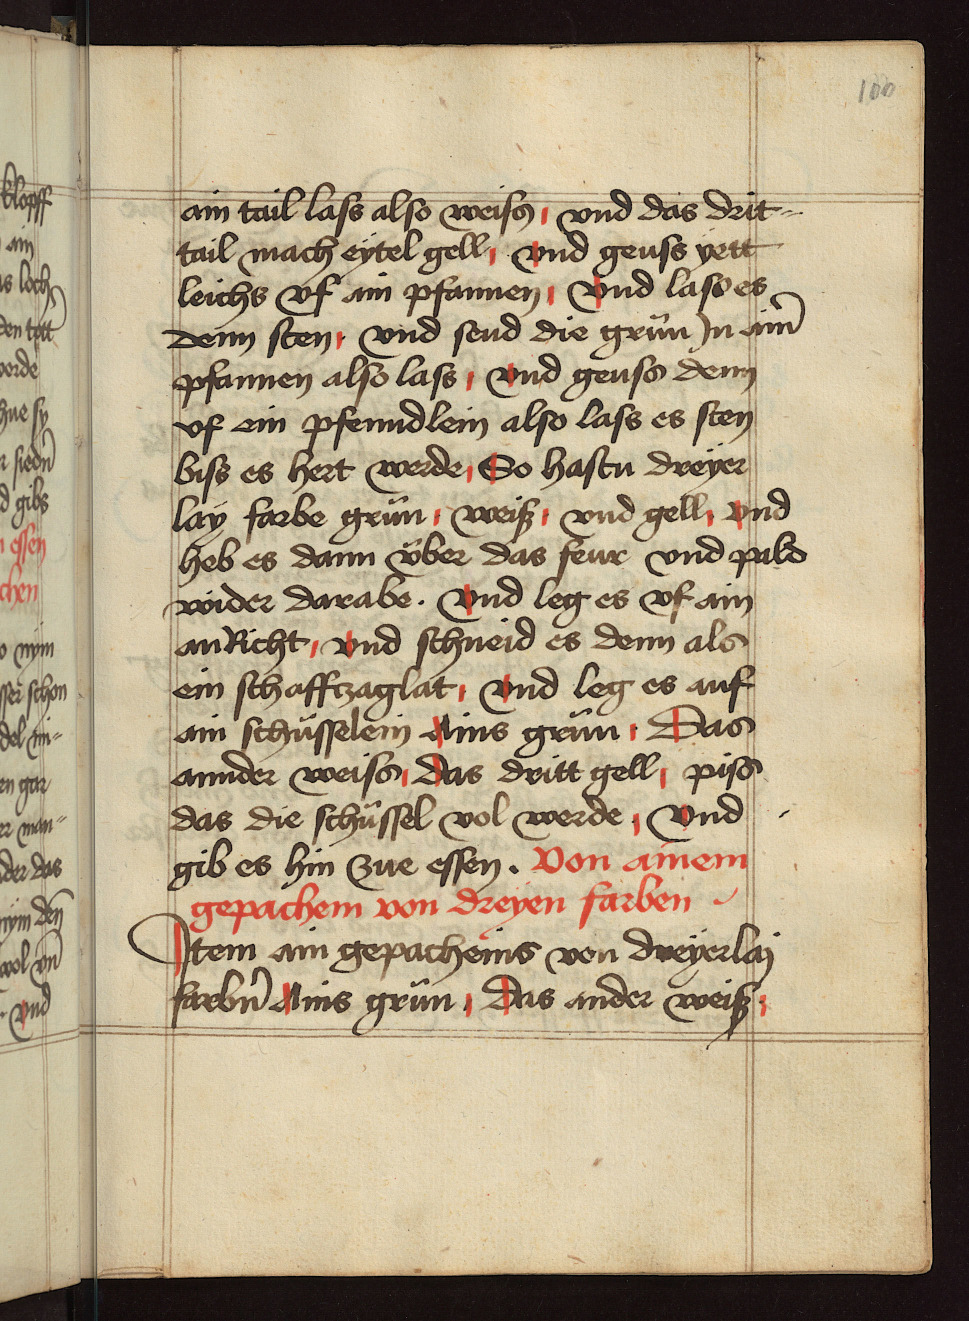 100
ain tail lass also weiss, vnd das drit-
tail mach eytel gell, vnd geuss yett
leichs vf ain pfannen, vnd lass es
denn sten, vnd send die grün Jn aim̄
pfannen also lass, vnd geuss denn
vf ein pfenndlein also lass es sten
biss es hert werde, So hastu dreyer
lay farbe grün, weiß, vnd gell, vnd
heb es dann vͤber das feur vnd pald
wider darabe. vnd leg es vf ain
anRicht, vnd schneid es denn als
ein schaffczaglat, vnd leg es auf
ain schüsselein Ains grün, Das
annder weiss, Das dritt gell, piss
das die schüssel vol werde, vnd
gib es hin zue essen. Von ainem
gepachem von dreyen farben
Jtem ain gepacheins von dreyerlaj
farbn̄ Ains grün, Das ander weiß,